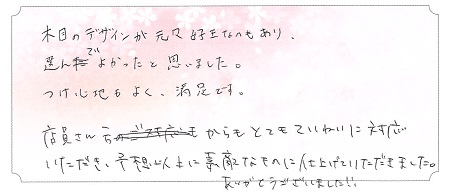 木目のデザインが元々好きなのもあり、
選んでよかったと思いました。
つけ心地もよく、満足です。
店員さんからもとてもていねいに対応
いただき、予想以上に素敵なものに仕上げていただきました。
ありがとうございました!!